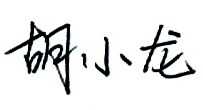 胡小龙